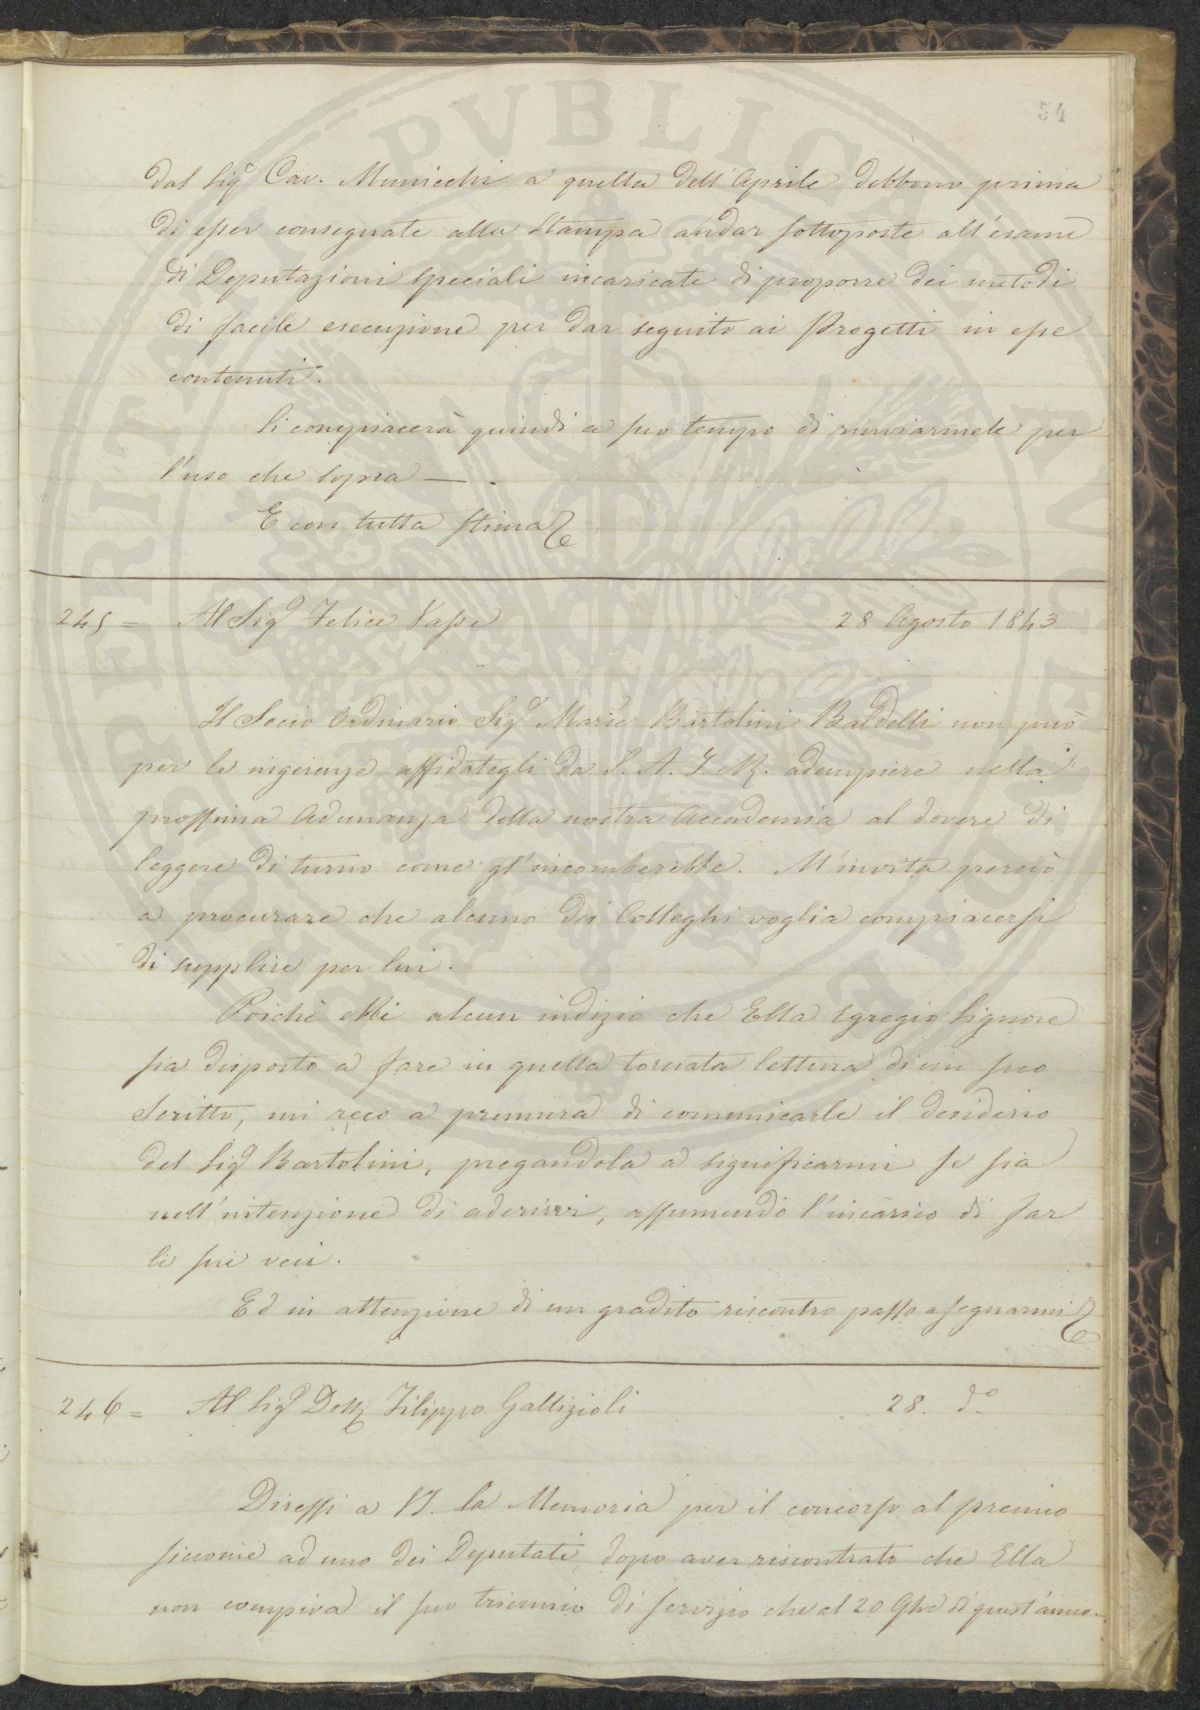 54
dal Sig.r Cav. Municchi a quella dell'Aprile debbono prima
di esser consegnate alla Stampa andar sottoposte all'esame
di Deputazioni speciali incaricate di proporre dei metodi
di facile esecuzione per dar seguito ai Progetti in esse
contenuti.
Si compiacerà quindi a suo tempo di rinviarmele per
l'uso che sopra — .
E con tutta stima
245 = Al Sig.r Felice Vasse 28 Agosto 1843
Il Socio Ordinario Sig.r March.e Bartolini Baldelli non può
per le ingerenze affidategli da S. A. I. R. adempiere nella
prossima Adunanza della nostra Accademia al dovere di
leggere di turno come gl'incomberebbe. M'invita perciò
a procurare che alcuno dei Colleghi voglia compiacersi
di supplire per lui.
Poichè ebbi alcun indizio che Ella Egregio Signore
sia disposto a fare in quella tornata lettura di un suo
Scritto, mi reco a premura di comunicarle il desiderio
del Sig.r Bartolini, pregandola a significarmi se sia
nell'intenzione di aderirvi, assumendo l'incarico di far
le sue veci.
Ed in attenzione di un gradito riscontro passo a segnarmi
246 = Al Sig.r Dott. Filippo Gallizioli 28. d.o
Diressi a VS. la Memoria per il concorso al premio
siccome ad uno dei Deputati dopo aver riscontrato che Ella
non compiva il suo triennio di servizio che al 20 9bre di quest'anno.
PVBLICA